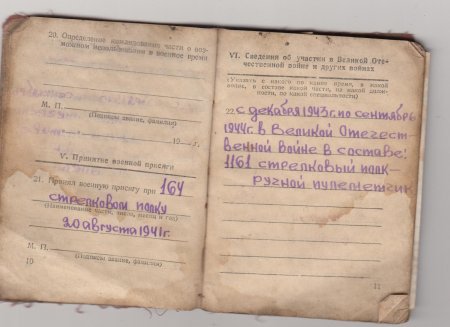 20. Определение командования части о воз-
можном использовании в военное время
М. П.
(Подпись звание, фамилия)
19 г.
V. Принятие военной присяги
21. Принял военную присягу при 164
стрелковом полку
(Наименование части, число, месяц и год)
20 августа 1941г.
М. П.
(Подпись звание, фамилия)
10
VI. Сведения об участии в Великой Оте-
чественной войне и других войнах
(Указать с какого по какое время, в какой
войне, в составе какой части, на какой долж-
ности, по какой специальности)
22. с декабря 1943г. по сентябрь
1944г. в Великой Отечест-
венной войне в составе:
1161 стрелковый полк-
ручной пулеметчик
11